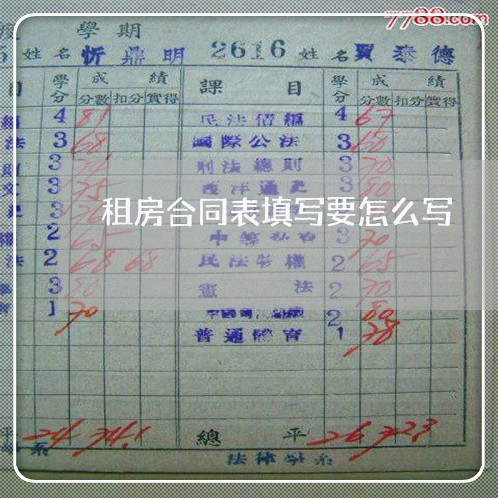 7788.com
學期
姓名 忻鼎明 2616 姓名 賈泰德
目 學分 成績 課目 學分 成績
分數 扣分 實得 分數 扣分 實得
4 81 民法債編 4 67
法 3 68 國際公法 3 60
3 刑法總則 3 70
3 75 西洋通史 3 80
租房合同表填写要怎么写
2 65 3 70
法 2 68 68 民法物權 2 65
3 80 憲法 2 70
1 70 2 80
普通體育 1 78
平 24 74.1 總平 26 72.3
系 法律學系